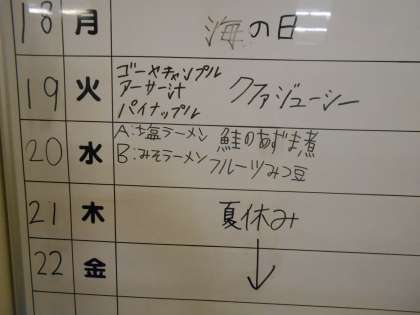 18 月 海の日
19 火 ゴーヤチャンプル クファジューシー
アーサー汁
パイナップル
20 水 A:塩ラーメン 鮭のあずま煮
B:みそラーメン フルーツみつ豆
21 木 夏休み
22 金